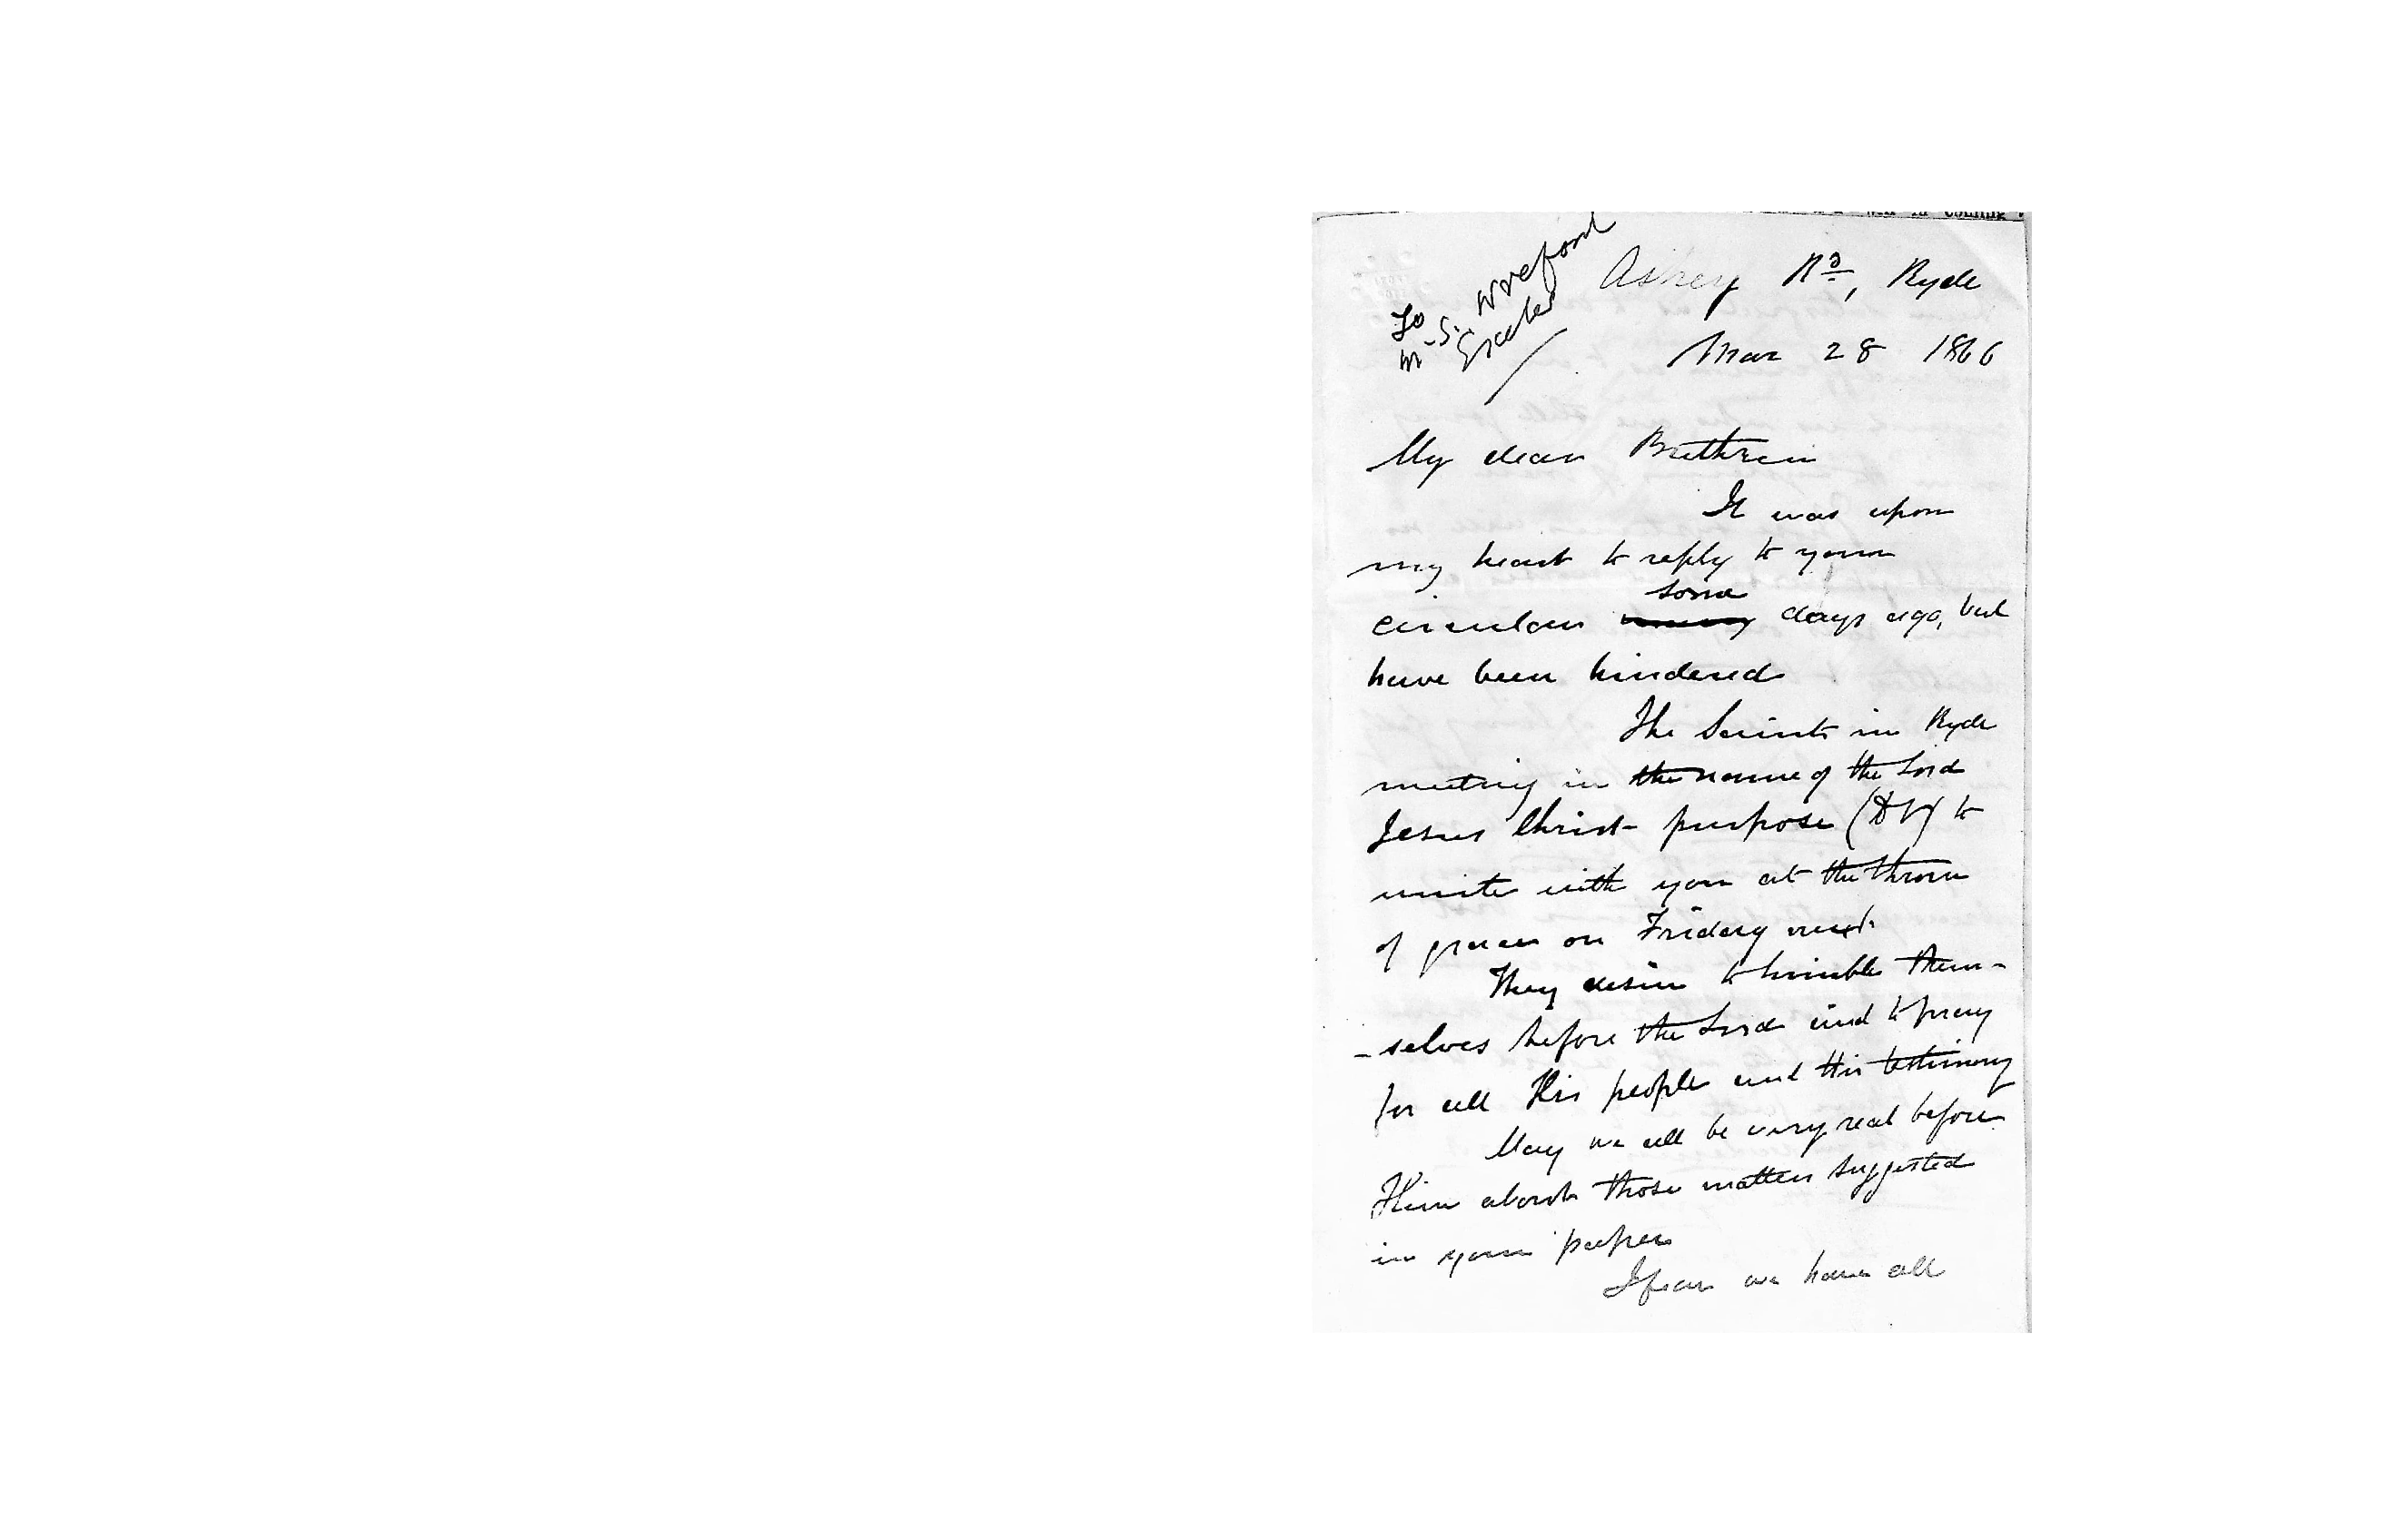 To
M. S. Wreford
Exeter
Ashey Rd, Ryde
Mar 28 1866
My dear Brethren
It was upon
my heart to reply to your
some
circular many days ago, but
have been hindered
The Saints in Ryde
meeting in the name of the Lord
Jesus Christ purpose (DV) to
unite with you at the throne
of grace on Friday next.
They desire to humble them-
-selves before the Lord and to pray
for all His people and His testimony
May we all be very real before
Him about those matters suggested
in your paper
I fear we have all